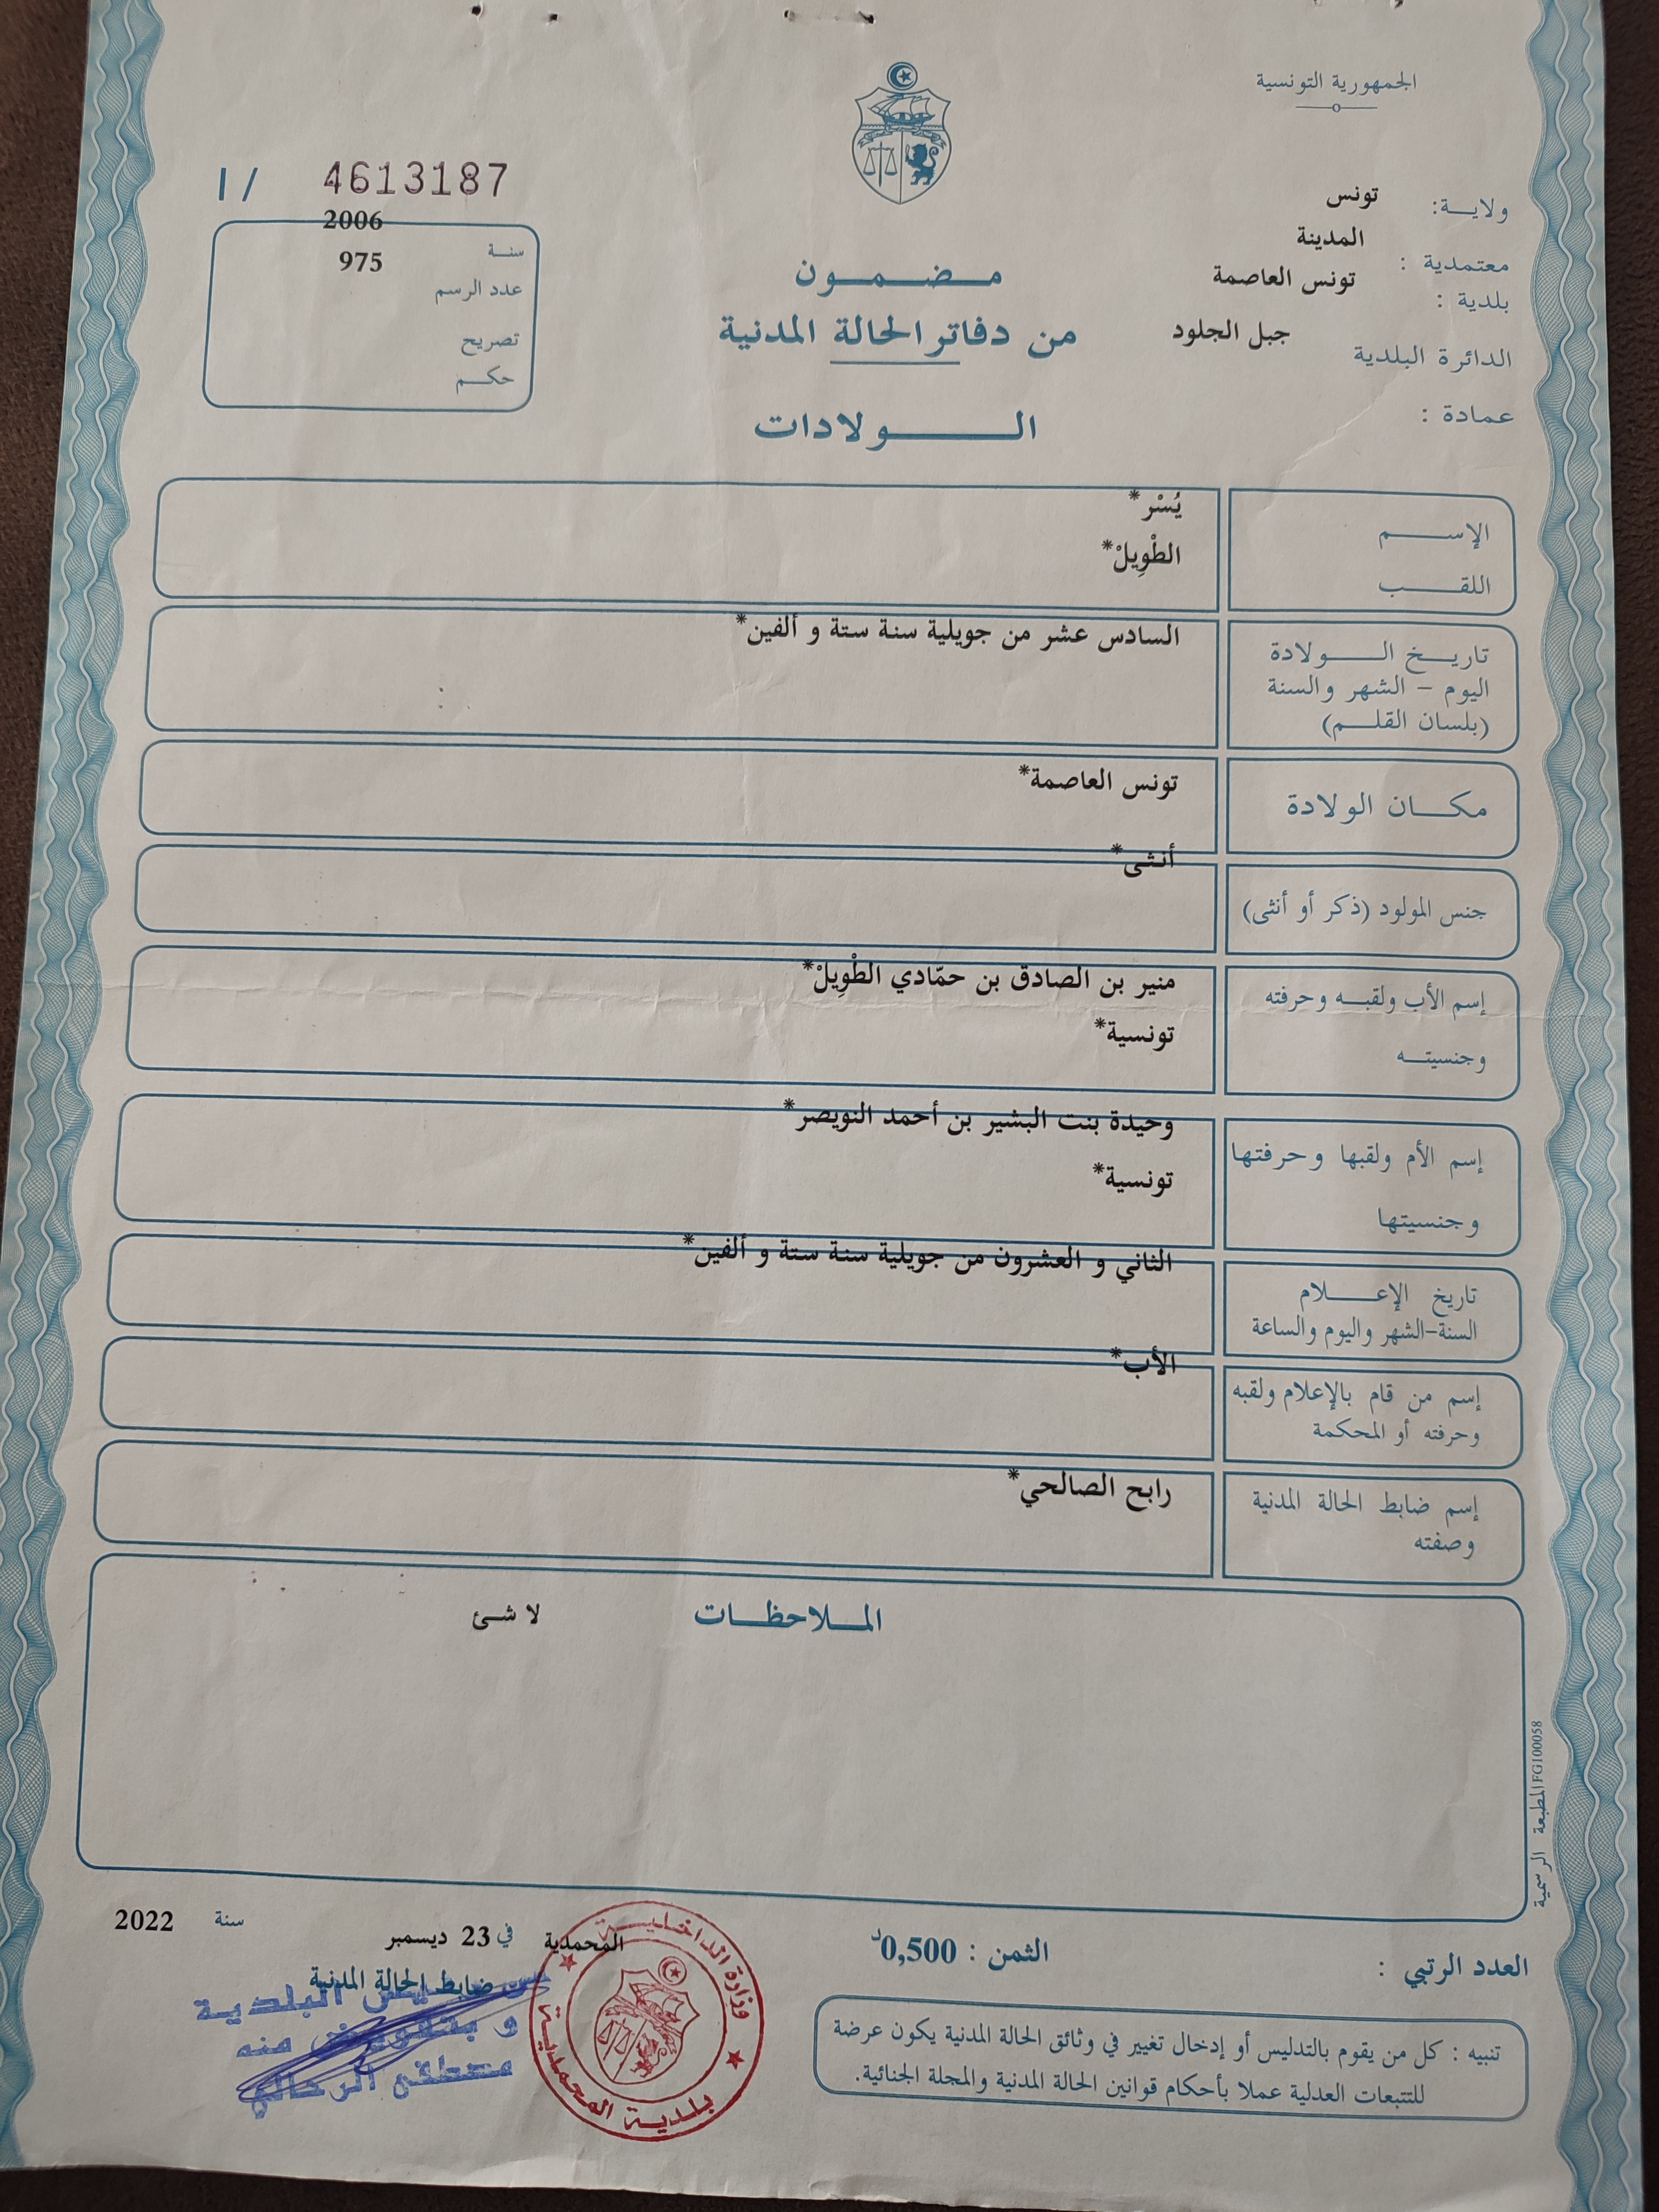 الجمهورية التونسية
ولاية: تونس
معتمدية : المدينة
بلدية : تونس العاصمة
الدائرة البلدية جبل الجلود
عمادة :
مضمون
من دفاتر الحالة المدنية
الولادات
I / 4613187
سنة 2006
عدد الرسم 975
تصريح
حكم
الإسم يُسْر*
اللقب الطْوِيلْ*
تاريخ الولادة السادس عشر من جويلية سنة ستة و ألفين*
اليوم - الشهر والسنة
(بلسان القلم)
مكان الولادة تونس العاصمة*
جنس المولود (ذكر أو أنثى) أنثى*
إسم الأب ولقبه وحرفته منير بن الصادق بن حمّادي الطْوِيلْ*
وجنسيته تونسية*
إسم الأم ولقبها وحرفتها وحيدة بنت البشير بن أحمد النويصر*
وجنسيتها تونسية*
تاريخ الإعلام الثاني و العشرون من جويلية سنة ستة و ألفين*
السنة-الشهر واليوم والساعة
إسم من قام بالإعلام ولقبه الأب*
وحرفته أو المحكمة
إسم ضابط الحالة المدنية رابح الصالحي*
وصفته
الملاحظات لا شئ
المطبعة الرسمية FG100058
العدد الرتبي :
الثمن : 0,500د
المحمدية في 23 ديسمبر سنة 2022
ضابط الحالة المدنية
البلدية
و بتفويض منه
مصطفى
وزارة الداخلية
بلدية المحمدية
تنبيه : كل من يقوم بالتدليس أو إدخال تغيير في وثائق الحالة المدنية يكون عرضة
للتتبعات العدلية عملا بأحكام قوانين الحالة المدنية والمجلة الجنائية.